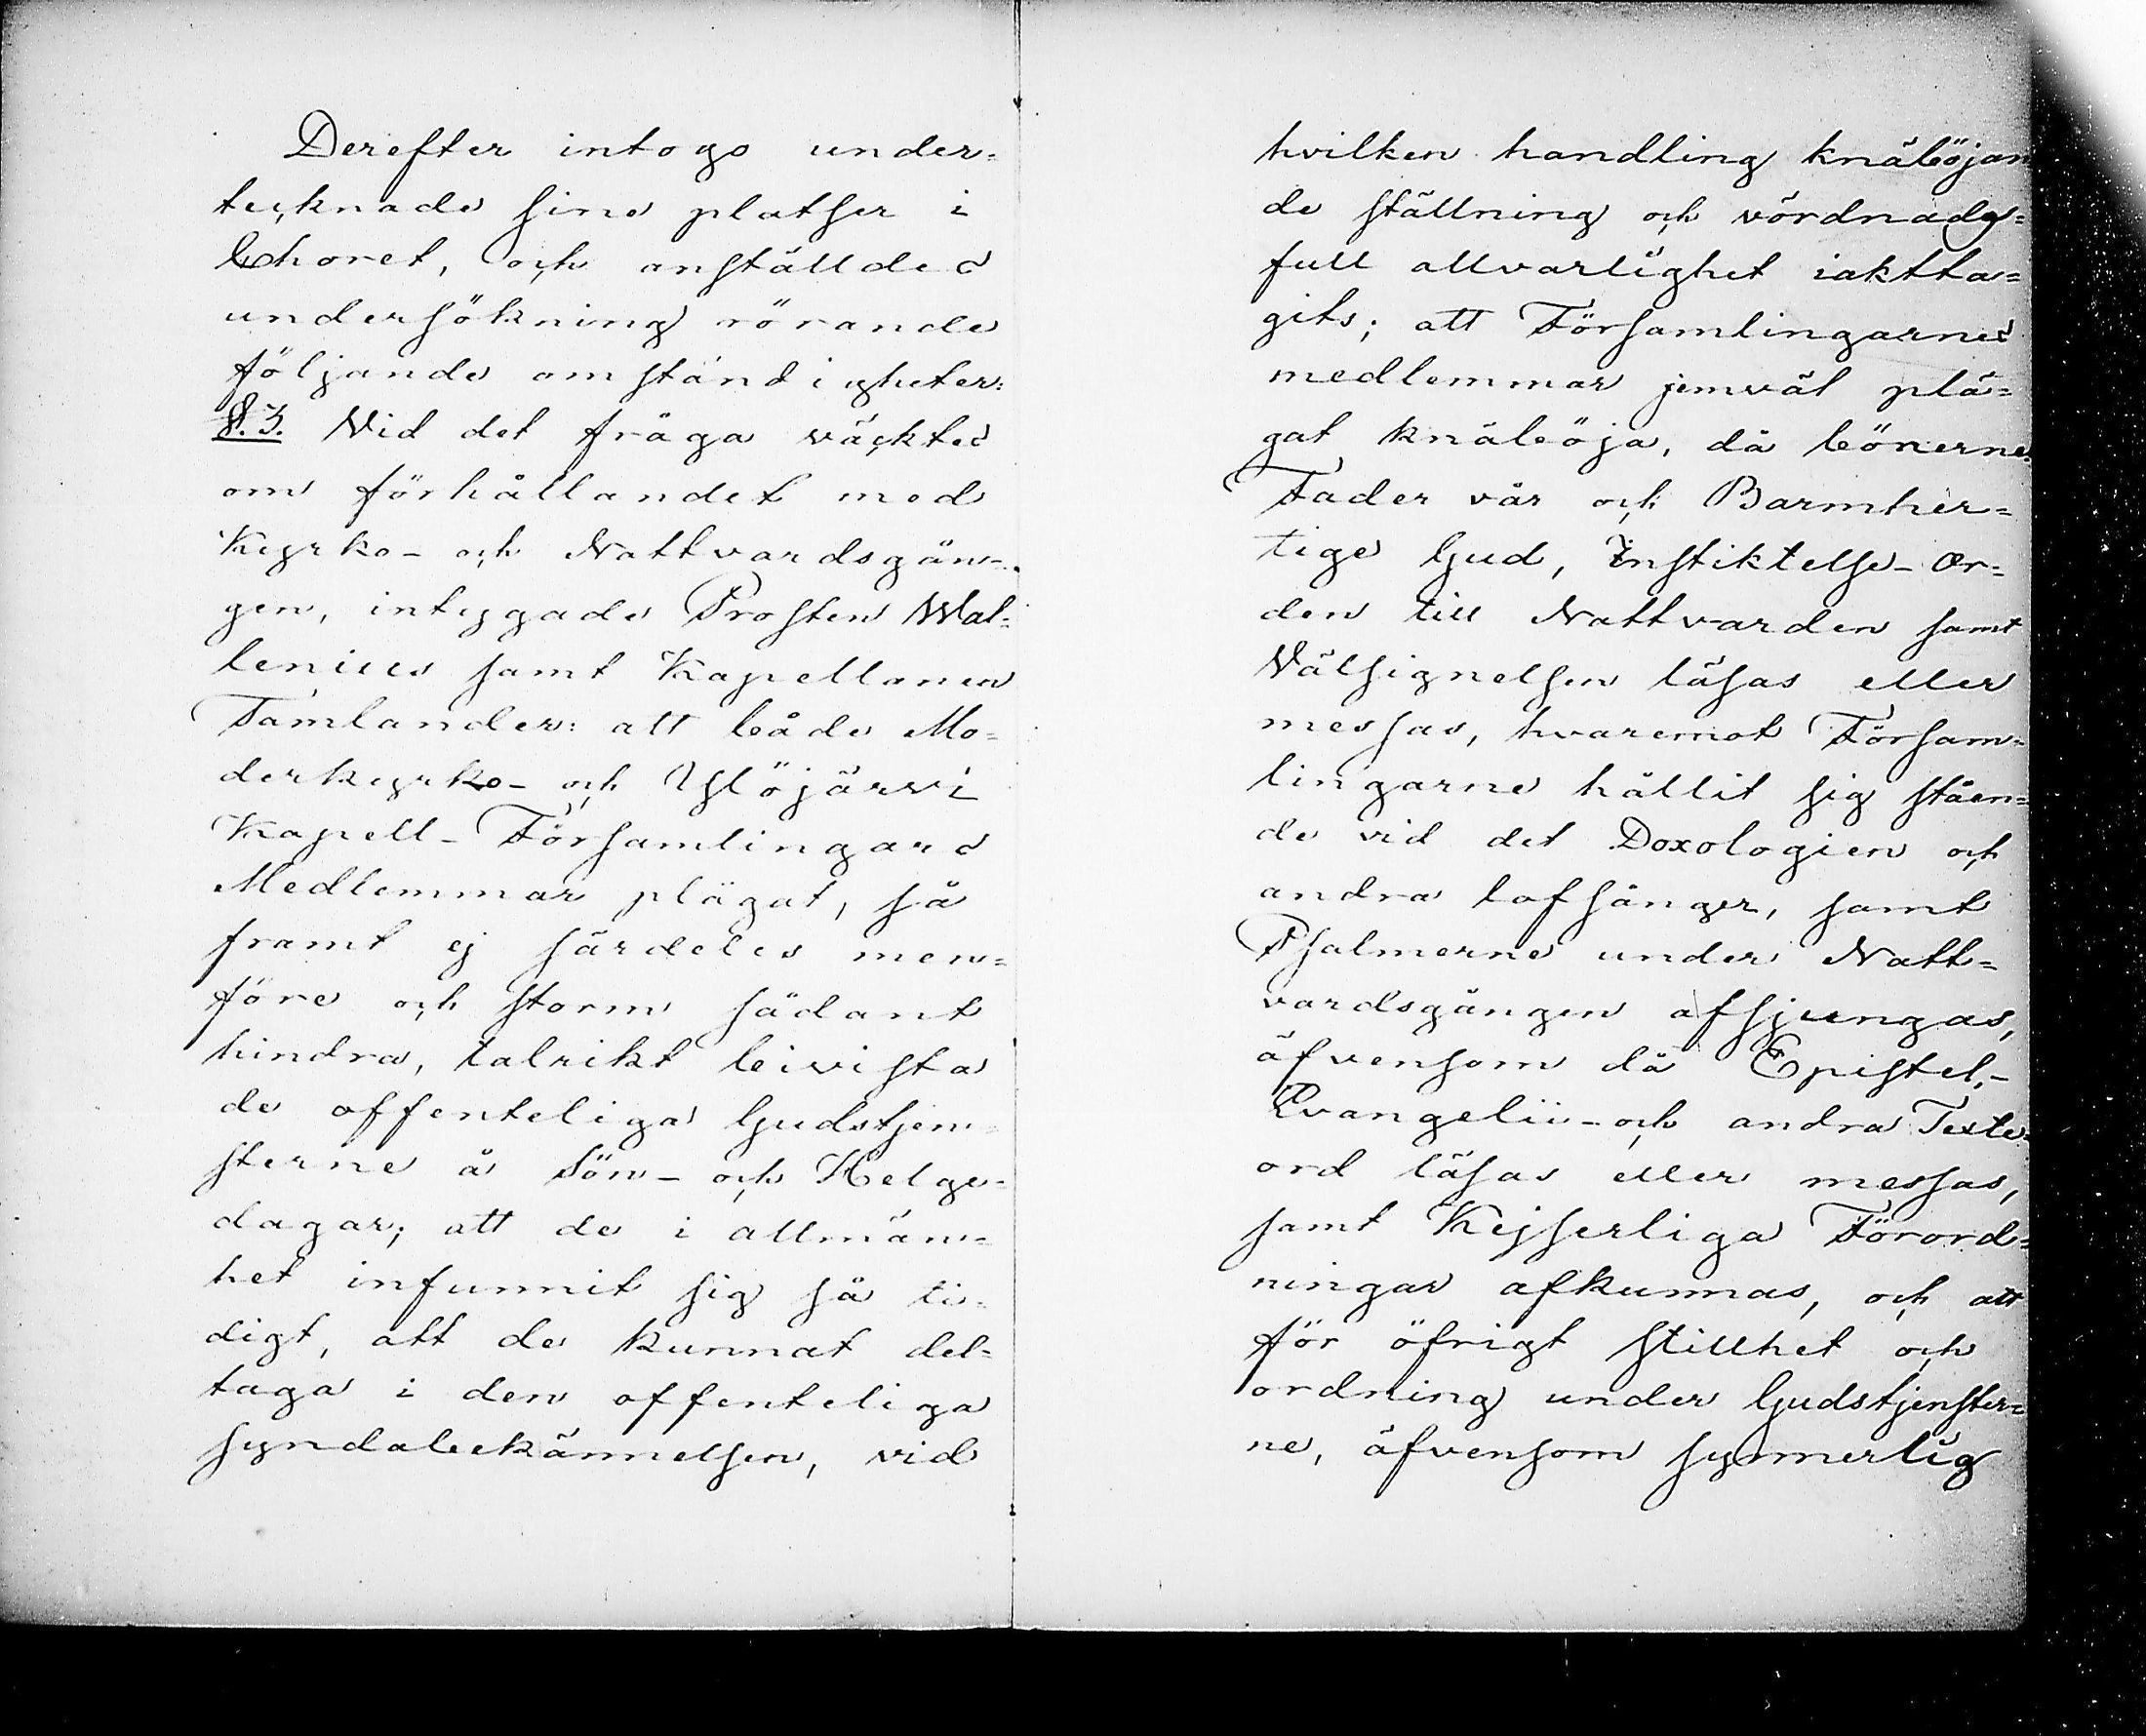 Derefter intogo under=
tecknade sine platser i
Choret, och anställdes
undersökning rörande
följande omständigheter:
§. 3. Vid det fråga väcktes
om förhållandet med
Kyrko- och Nattvardsgån-
gen, intygade Prosten Wal=
lenius samt Kapellanen
Tamlander: att både Mo=
derkyrko- och Ylöjärvi
Kapell-Församlingars
Medlemmar plägat, så
framt ej särdeles men=
före och storm sådant
hindra, talrikt bivista
de offenteliga Gudstjen=
sterne å Sön- och Helge-
dagar; att de i allmän=
het infunnit sig så ti=
digt, att de kunnat del=
taga i den offenteliga
syndabekännelsen, vid
hvilken handling knäböjan
de ställning och vördnads=
full allvarlighet iaktta=
gits; att Församlingarnes
medlemmar jemväl plä=
gat knäböja, då bönerne
Fader vår och Barmher=
tige Gud, Instiktelse-Or=
den till Nattvarden samt
Välsignelsen läsas eller
messas, hvaremot Försam=
lingarne hållit sig ståen=
de vid det Doxologien och
andra lofsånger, samt
Psalmerne under Natt=
vardsgången afsjungas,
äfvensom då Epistel,-
Evangelii- och andra Texte
ord läsas eller messas,
samt Kejserliga Förord=
ningar afkunnas, och att
för öfrigt stillhet och
ordning under Gudstjenster=
ne, äfvensom synnerlig